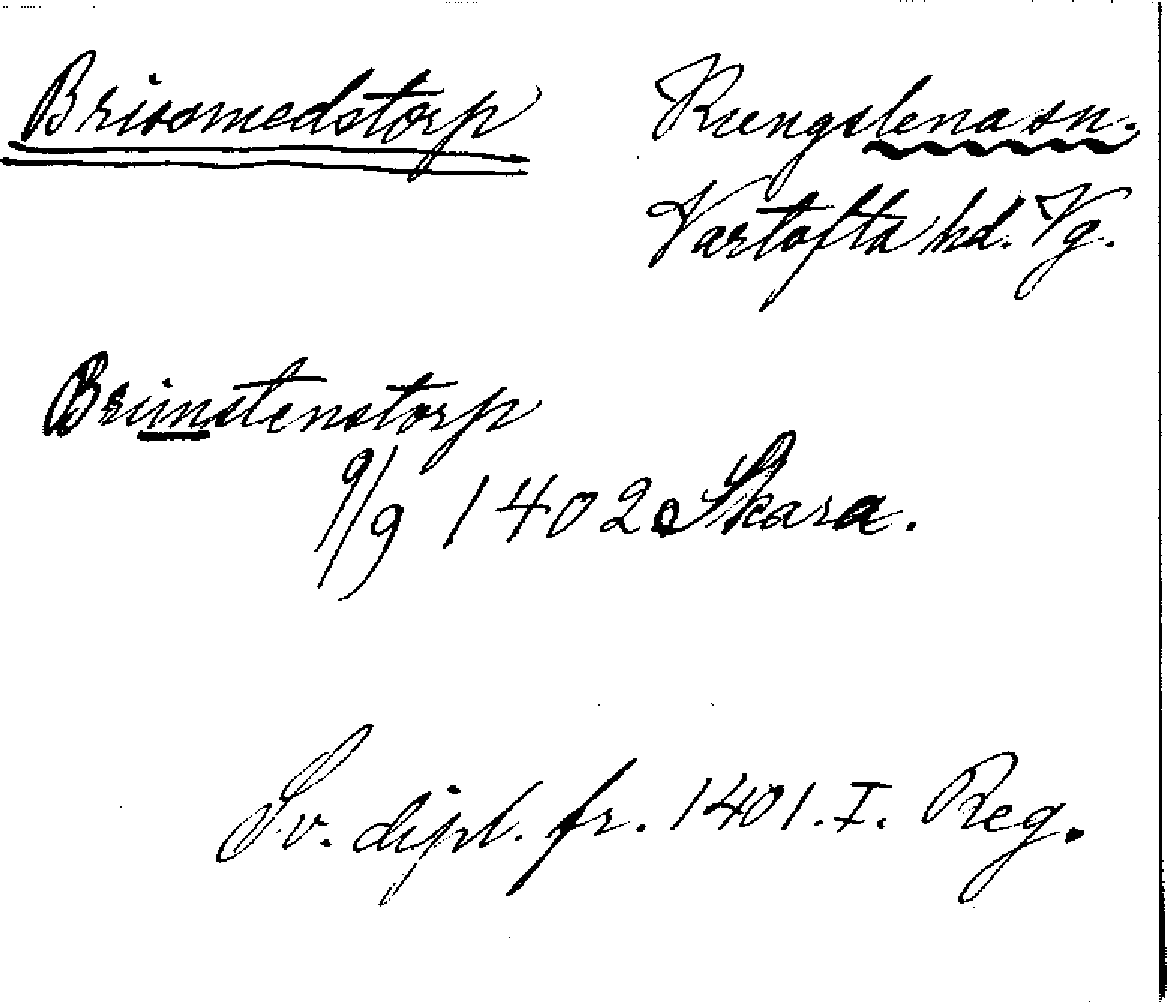 Brismedstorp
Kungslena sn.
Vartofta hd. Vg.
Brimstenstorp
9/9 1402. Skara.
Sv. dipl. fr. 1401. I. Reg.